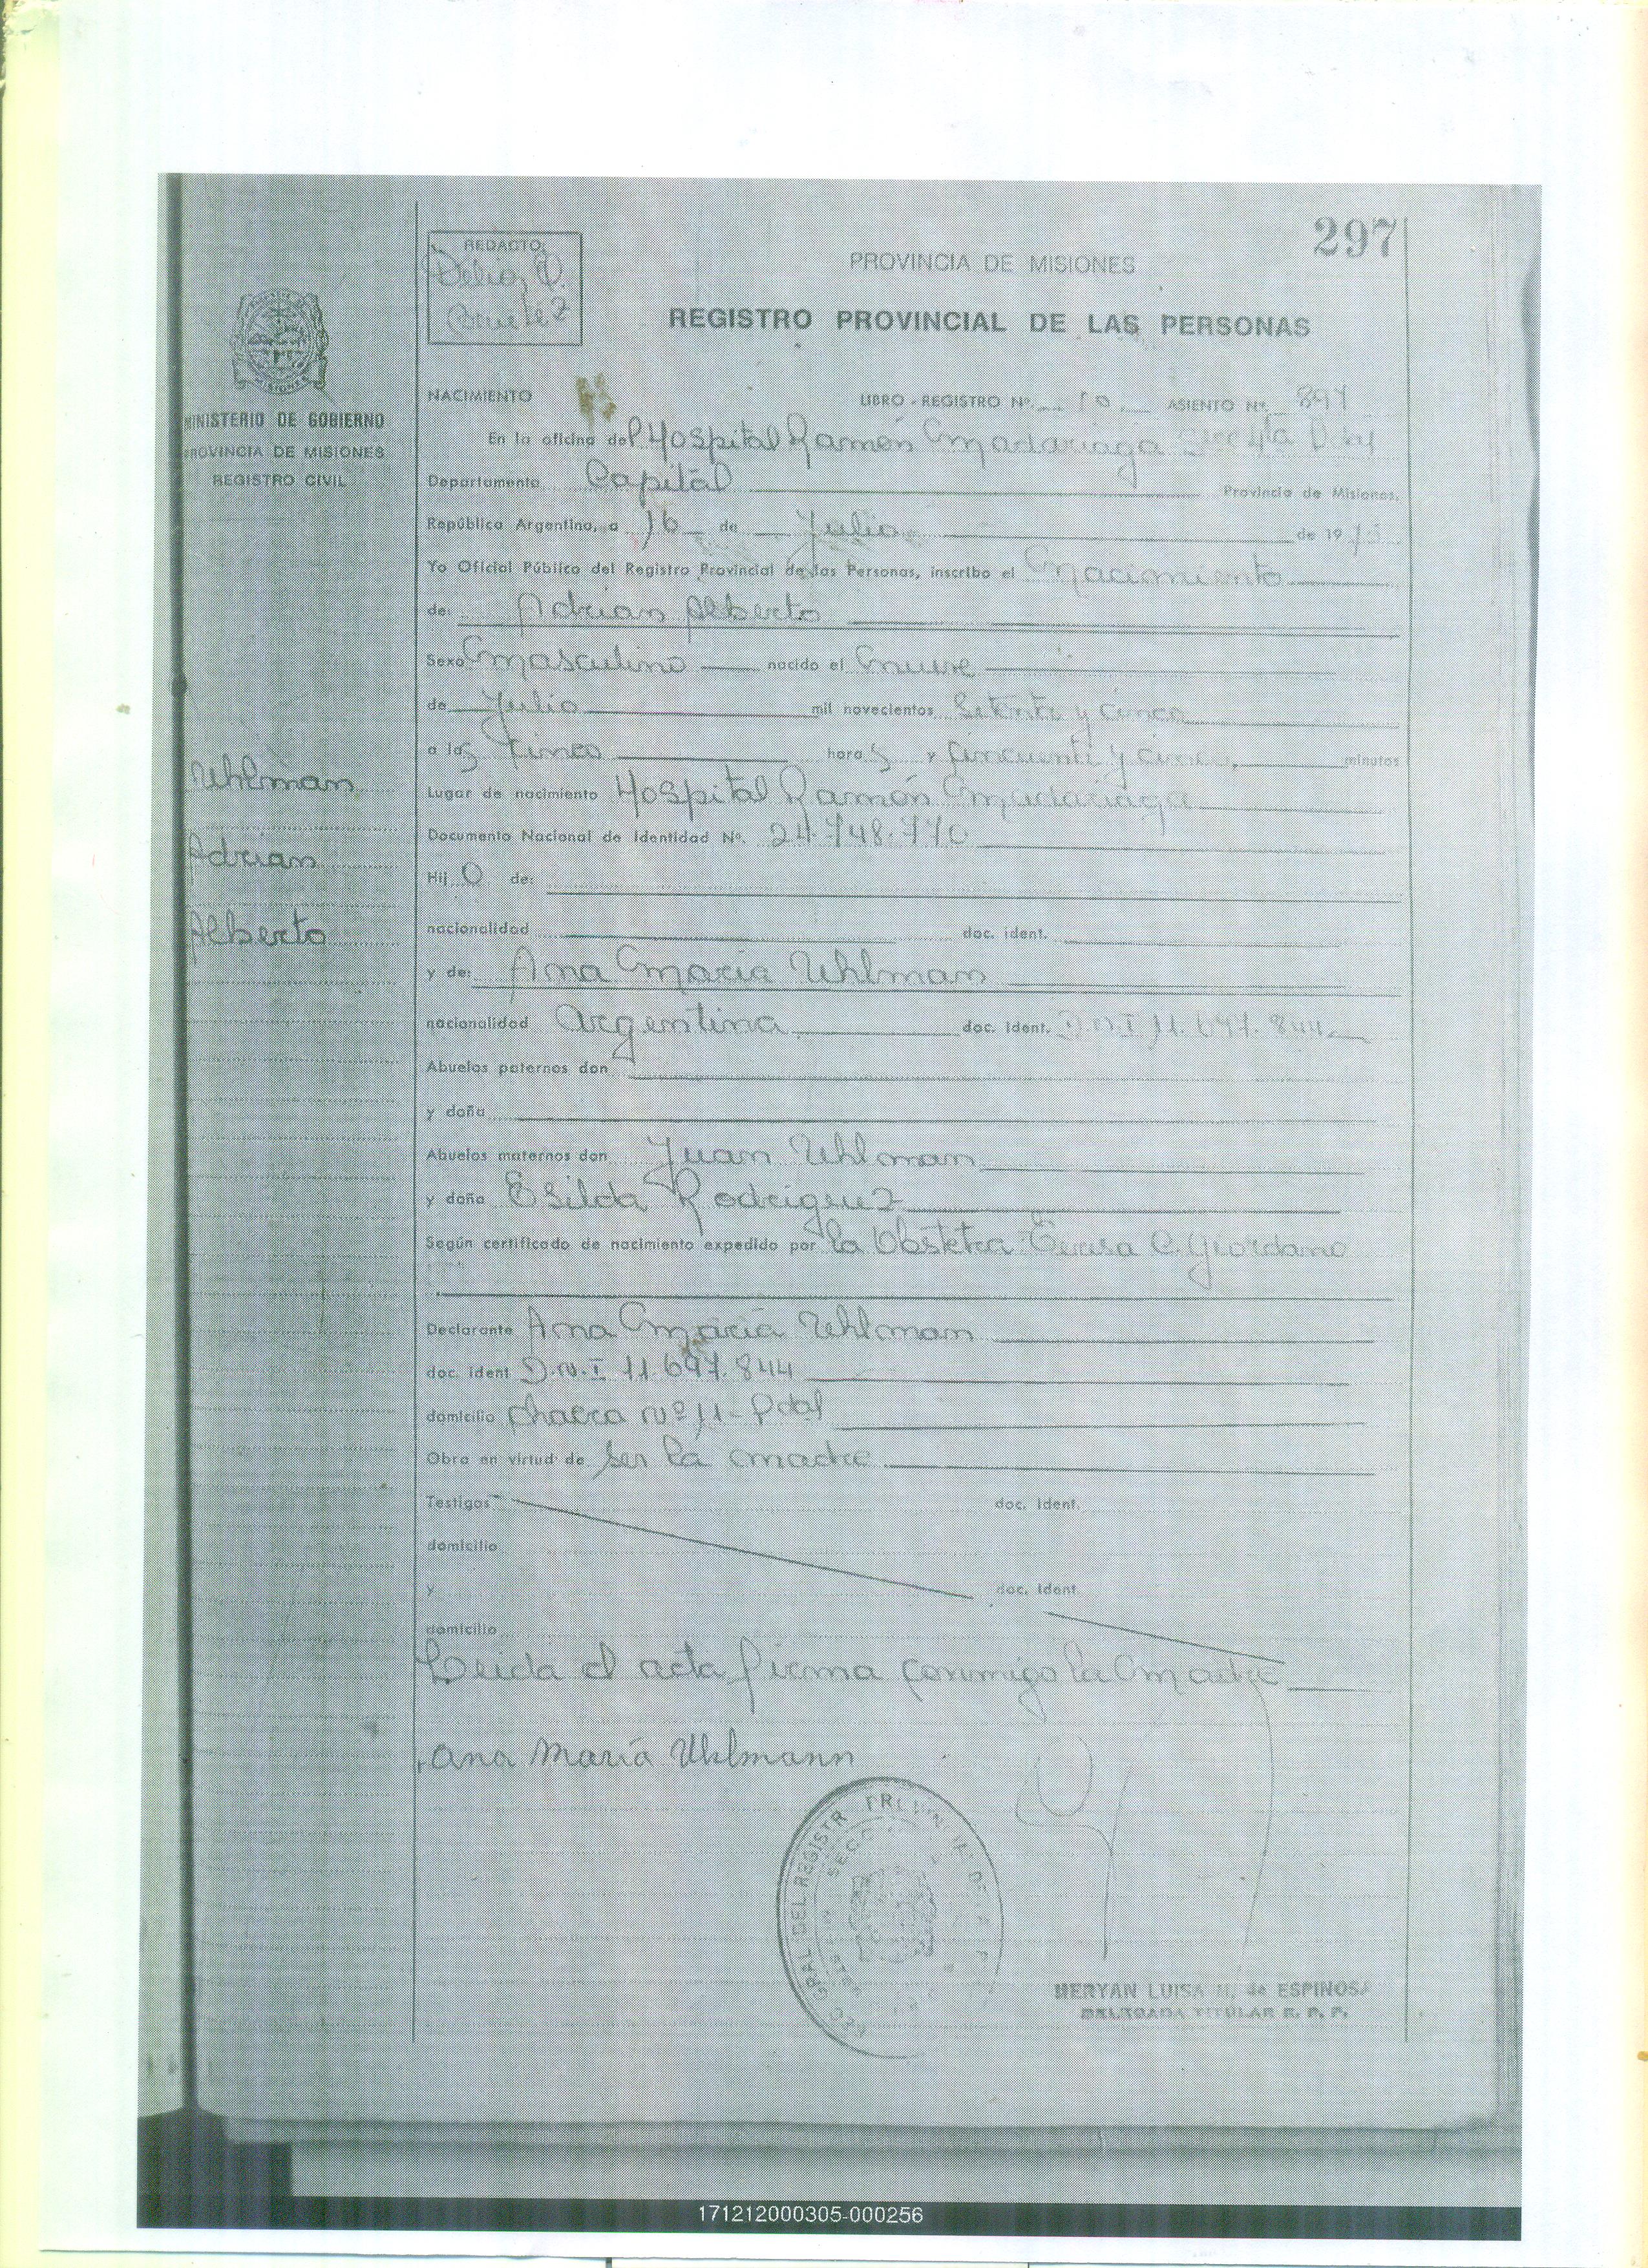 297
REDACTO:
Delia
PROVINCIA DE MISIONES
REGISTRO PROVINCIAL DE LAS PERSONAS
MINISTERIO DE GOBIERNO
PROVINCIA DE MISIONES
REGISTRO CIVIL
NACIMIENTO LIBRO - REGISTRO Nº. 10 ASIENTO Nº. 897
En la oficina del Hospital Ramón Madariaga Secc 4ta
Departamento Capital Provincia de Misiones.
República Argentina, a 16 de Julio de 1975
Yo Oficial Público del Registro Provincial de las Personas, inscribo el Nacimiento
de: Adrian Alberto
Sexo Masculino nacido el nueve
de Julio mil novecientos Setenta y cinco
a las cinco horas y cincuenta y cinco, minutos
Uhlman
Adrian
Alberto
Lugar de nacimiento Hospital Ramón Madariaga
Documento Nacional de Identidad Nº. 24.748.770
Hijo de:
nacionalidad doc. ident.
y de: Ana Maria Uhlman
nacionalidad Argentina doc. ident. D.N.I 11.697.844
Abuelos paternos don
y doña
Abuelos maternos don Juan Uhlman
y doña Esilda Rodriguez
Según certificado de nacimiento expedido por la Obstetra Teresa C. Giordano
Declarante Ana Maria Uhlman
doc. ident D.N.I 11.697.844
domicilio Chacra Nº 11 - Pdas
Obra en virtud de ser la madre
Testigos doc. ident.
domicilio
y doc. ident
domicilio
Leida el acta, firma conmigo la madre
Ana María Uhlmann
GRAL DEL REGISTR PROVINCIAL DE LAS P
MERYAN LUISA M. de ESPINOSA
DELEGADA TITULAR R. P. P.
171212000305-000256